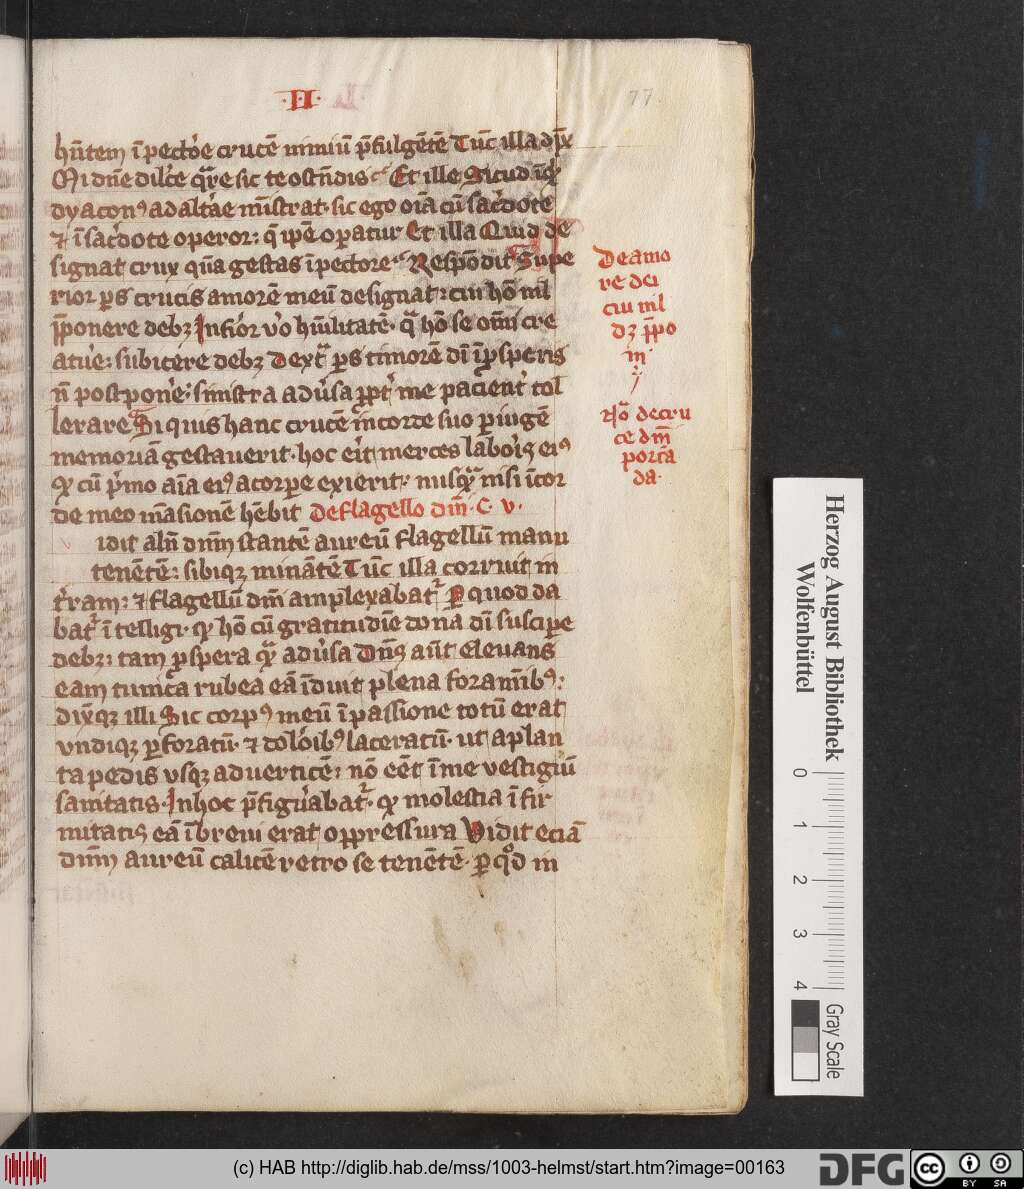 ·II·
77
hn̄tem ī pectoꝛe crucē nimiū p̄fulgētē Tūc illa dix̄
Mi dn̄e dilc̄e qͣre sic te ostn̄dis Et ille Sicud
dyaconꝰ ad altare mīstrat· sic ego oīa cū sac̄dote
⁊ ī sac̄dote operor: q̄ ip̄e oꝑatur Et illa Quid de
signat crux quā gestas ī pectore· Respōdit Supe
rior ꝑs crucis amorē meū designat: cui hō nil
p̄ponere debꝫ Infior v̓o hūilitatē· qͣ hō se om̄i cre
atu̓e: subicere debꝫ Dextͣ ꝑs timorē dī ī ꝓsperis
nō postpone̓: sinistra adu̓sa ꝓpt̓ me pacient̓ tol
lerare Si quis hanc crucē in corde suo ꝑ iugē
memoriā gestauerit· hoc erit merces labois eiꝰ
qꝫ cū p̓mo aīa eiꝰ a corꝑe exierit· nusqͣ nisi ī cor
de meo māsionē hēbit De flagello dn̄i· C· v·
idit alīn dn̄m stantē aureū flagellū manu
tenētē: sibiqꝫ minātē Tūc illa corruit in
t̓ram: ⁊ flagellū dn̄i amplexabat᷑ Per quod da
bat᷑ ī telligi· qꝫ hō cū gratitudīe dona dī susciꝑe
debꝫ: tam ꝓspera qͣ adu̓sa Dn̄s aūt eleuans
eam tunica rubea eā īduit plena foramībꝰ:
dixitqꝫ illi Sic corpꝰ meū ī passione totū erat
vndiqꝫ ꝑforatū· ⁊ doloibꝰ laceratū· ut a plan
ta pedis vsqꝫ ad verticē: nō eēt ī me vestigiū
sanitatis· In hoc p̄figuabat᷑· qꝫ molestia ī fir
mitatis eā ī breui erat oppressura Vidit eciā
dn̄m aureū calicē retro se tenētē· ꝑ qͦd in
De amo
re dei
cui nil
dꝫ p̄po
ni
Nō de cru
ce dn̄i
portā
da·
Herzog August Bibliothek
Wolfenbüttel
0 1 2 3 4
Gray Scale
(c) HAB http://diglib.hab.de/mss/1003-helmst/start.htm?image=00163
DFG
cc BY SA